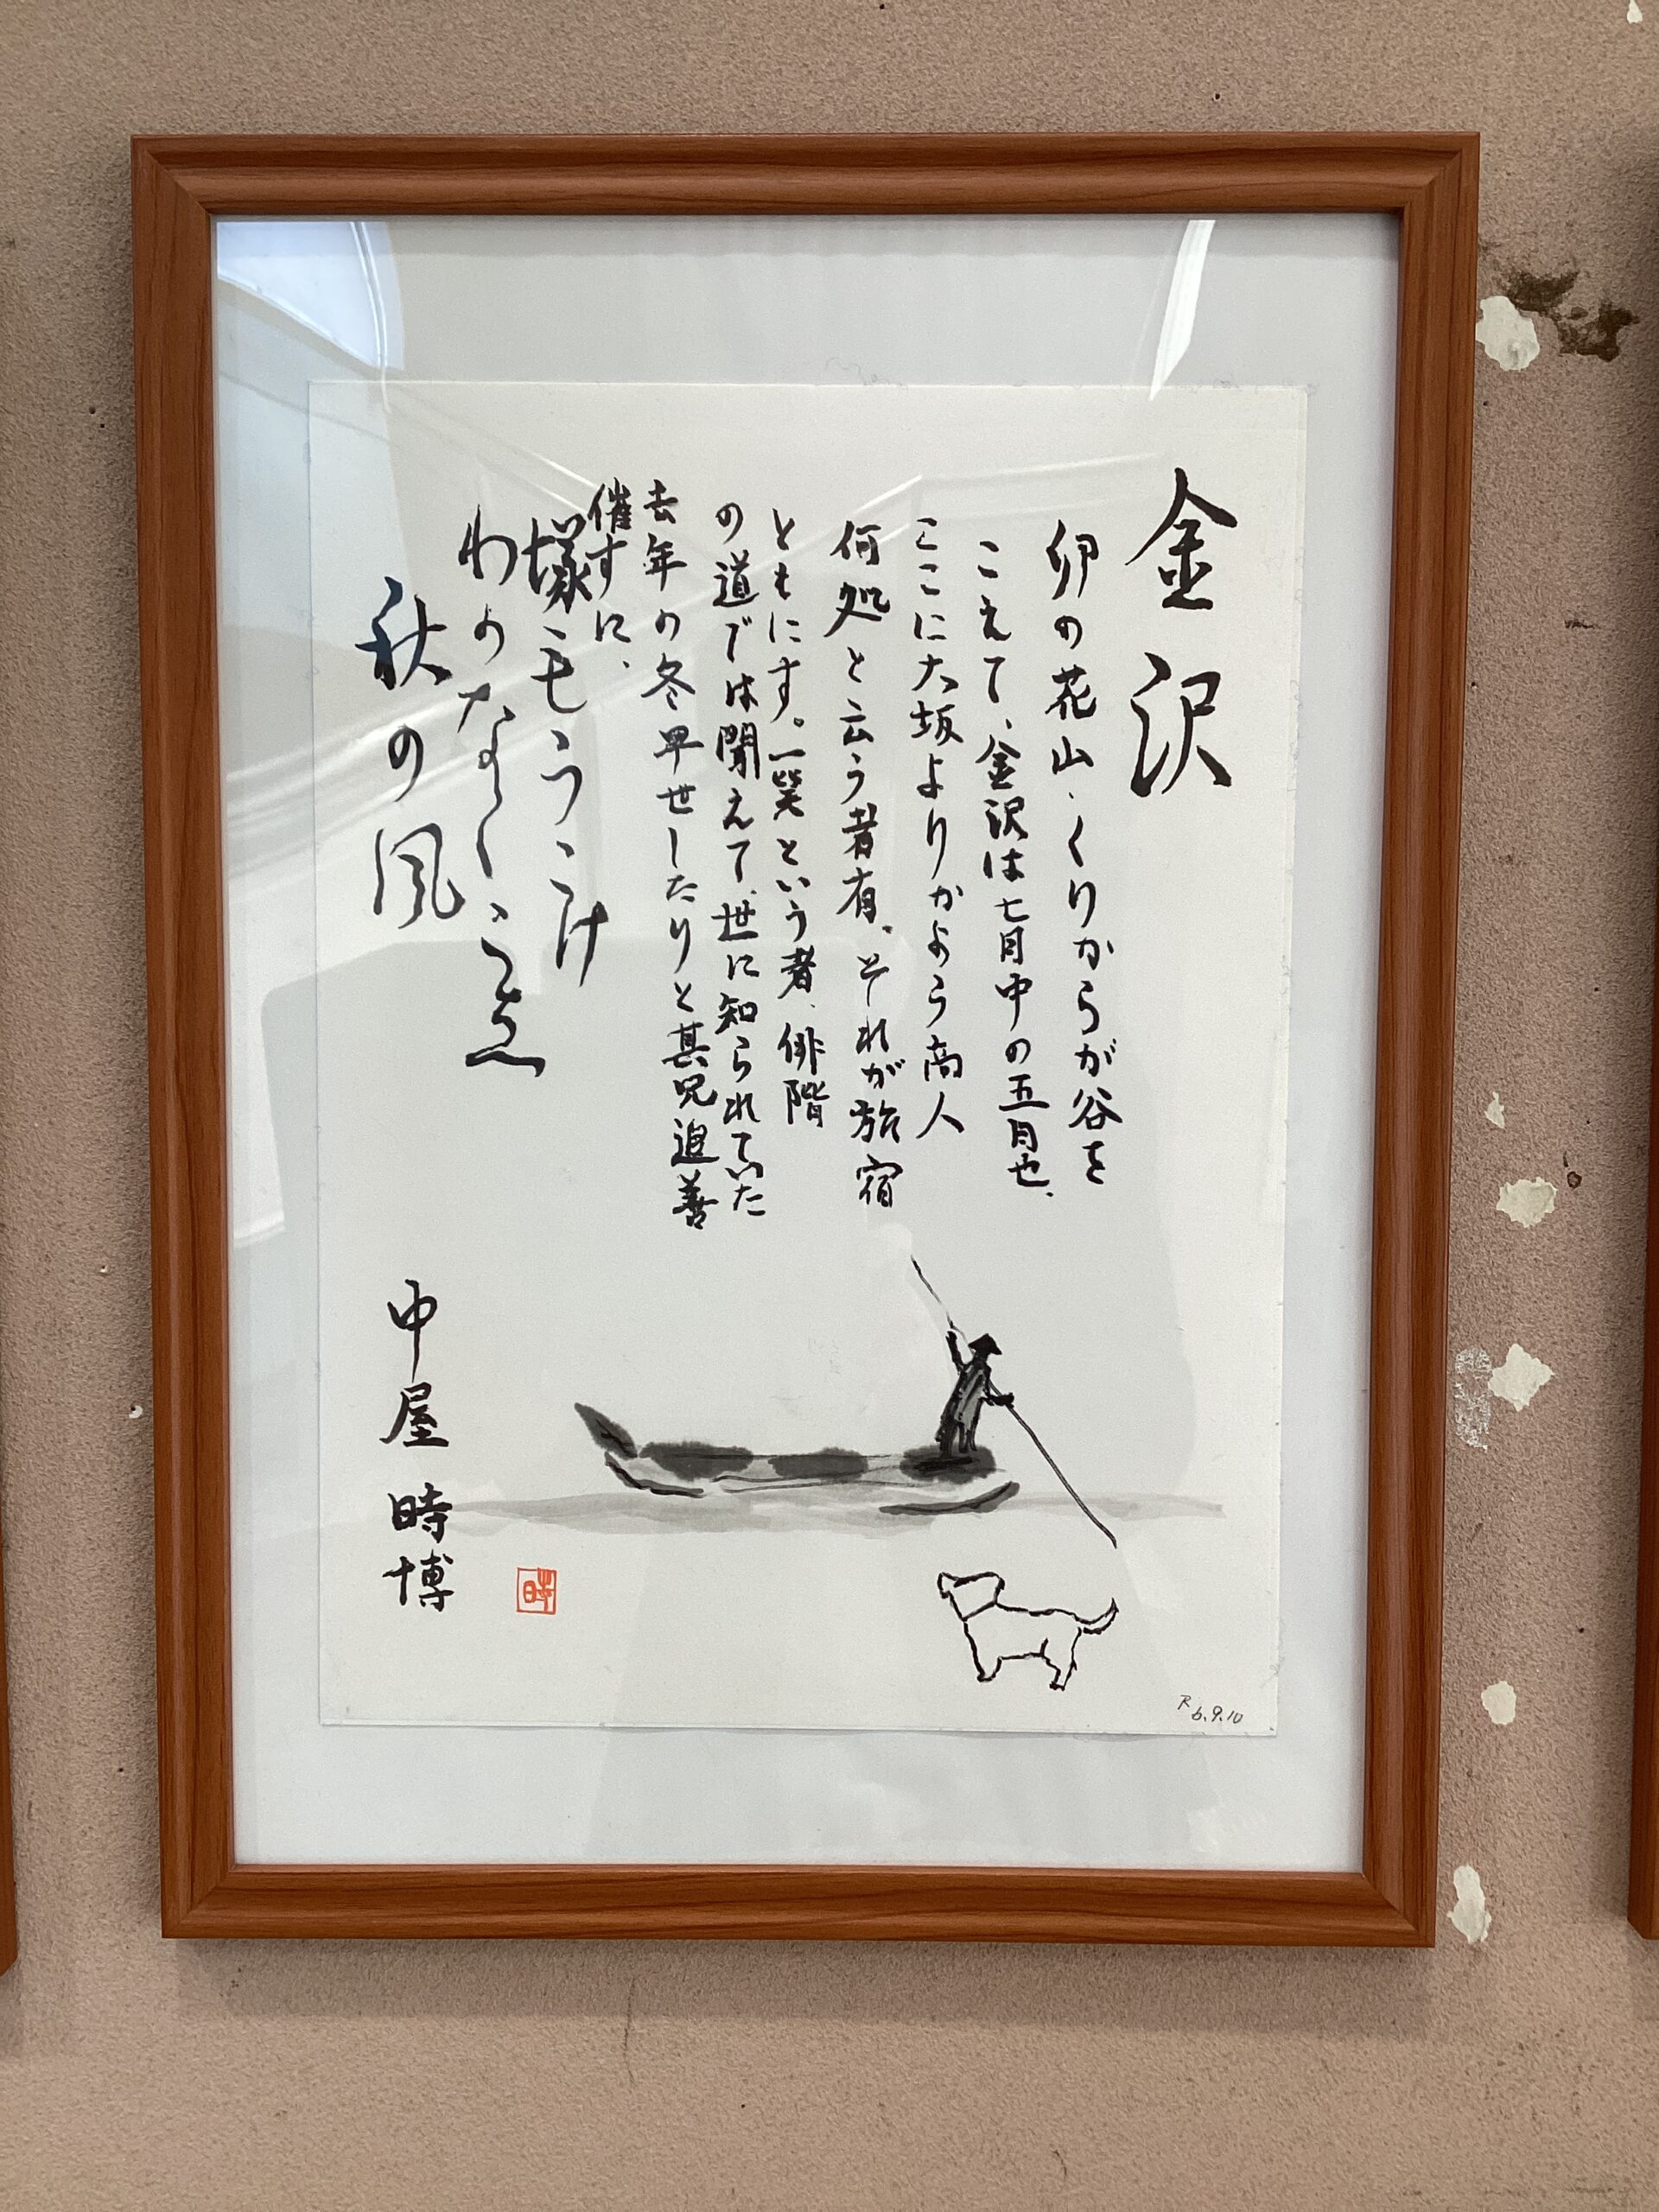 金沢
卯の花山・くりからが谷を
こえて、金沢は七月中の五日也、
ここに大坂よりかよう商人
何処と云う者有、それが旅宿
ともにす。一笑という者、俳階
の道では聞えて、世に知られていた
去年の冬早世したりと其兄追善
催すに、
塚もうこけ
わかなくこゑ
秋の風
中屋 時博
時
R6.9.10